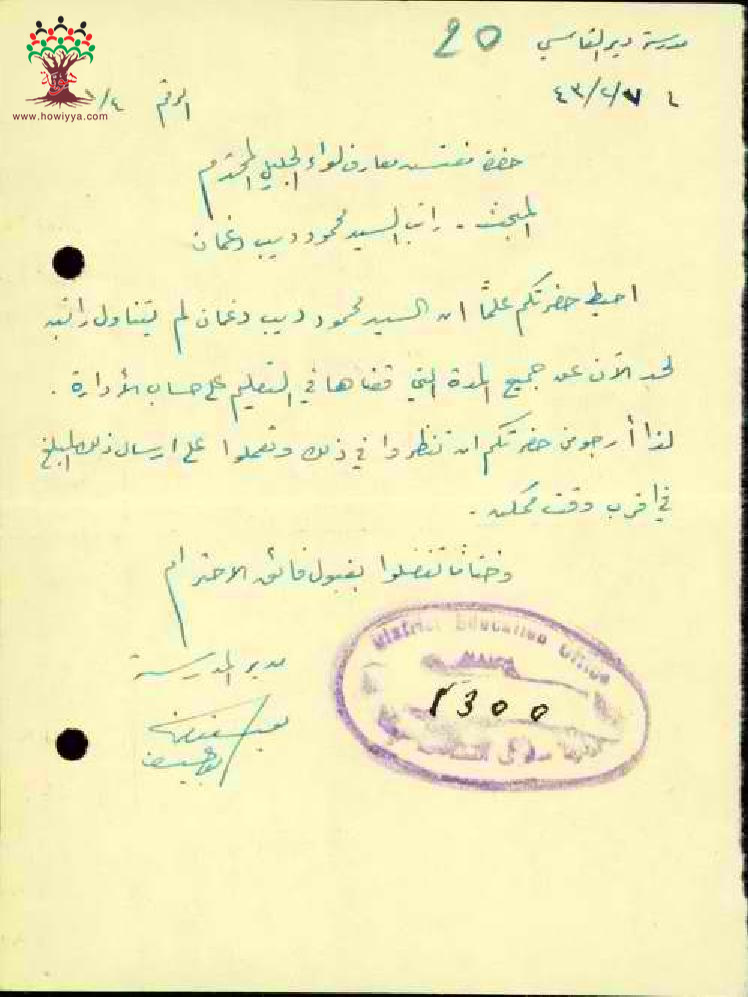 مدرسة ديرالقاسي 20
٤٣/٢/٧
الرقم ١/٤
www.howiyya.com
حضرة مفتش معارف لواء الجليل المحترم
المبحث - راتب السيد محمود ديب دغمان
احيط حضرتكم علمًا ان السيد محمود ديب دغمان لم يتناول راتبه
لحد الآن عن جميع المدة التي قضاها في التعليم على حساب الأدارة .
لذا أرجو من حضرتكم ان تنظروا في ذلك وتعملوا على ارسال ذلك المبلغ
في اقرب وقت ممكن .
وختامًا تفضلوا بقبول فائق الاحترام
مدير المدرسة
District Education Office
HAIFA
1300